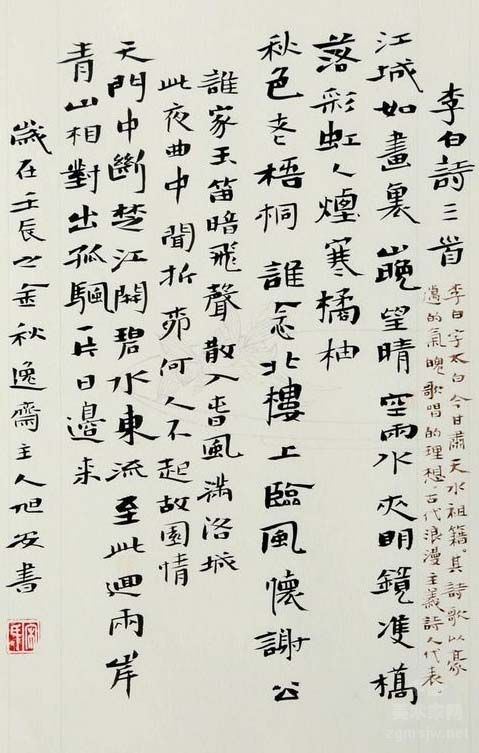 李白詩三首
李白字太白今甘肅天水祖籍。其詩歌以豪
邁的氣魄歌唱的理想.古代浪漫主義詩人代表。
江城如畫裏 山晚望晴空雨水夾明鏡雙橋
落彩虹人煙寒橘柚
秋色老梧桐 誰念北樓上臨風懷謝公
誰家玉笛暗飛聲散入春風滿洛城
此夜曲中聞折柳何人不起故園情
天門中斷楚江開碧水東流至此迴兩岸
青山相對出孤帆一片日邊來
歲在壬辰之金秋逸齋主人旭書
美术家网
zgmsjw.net